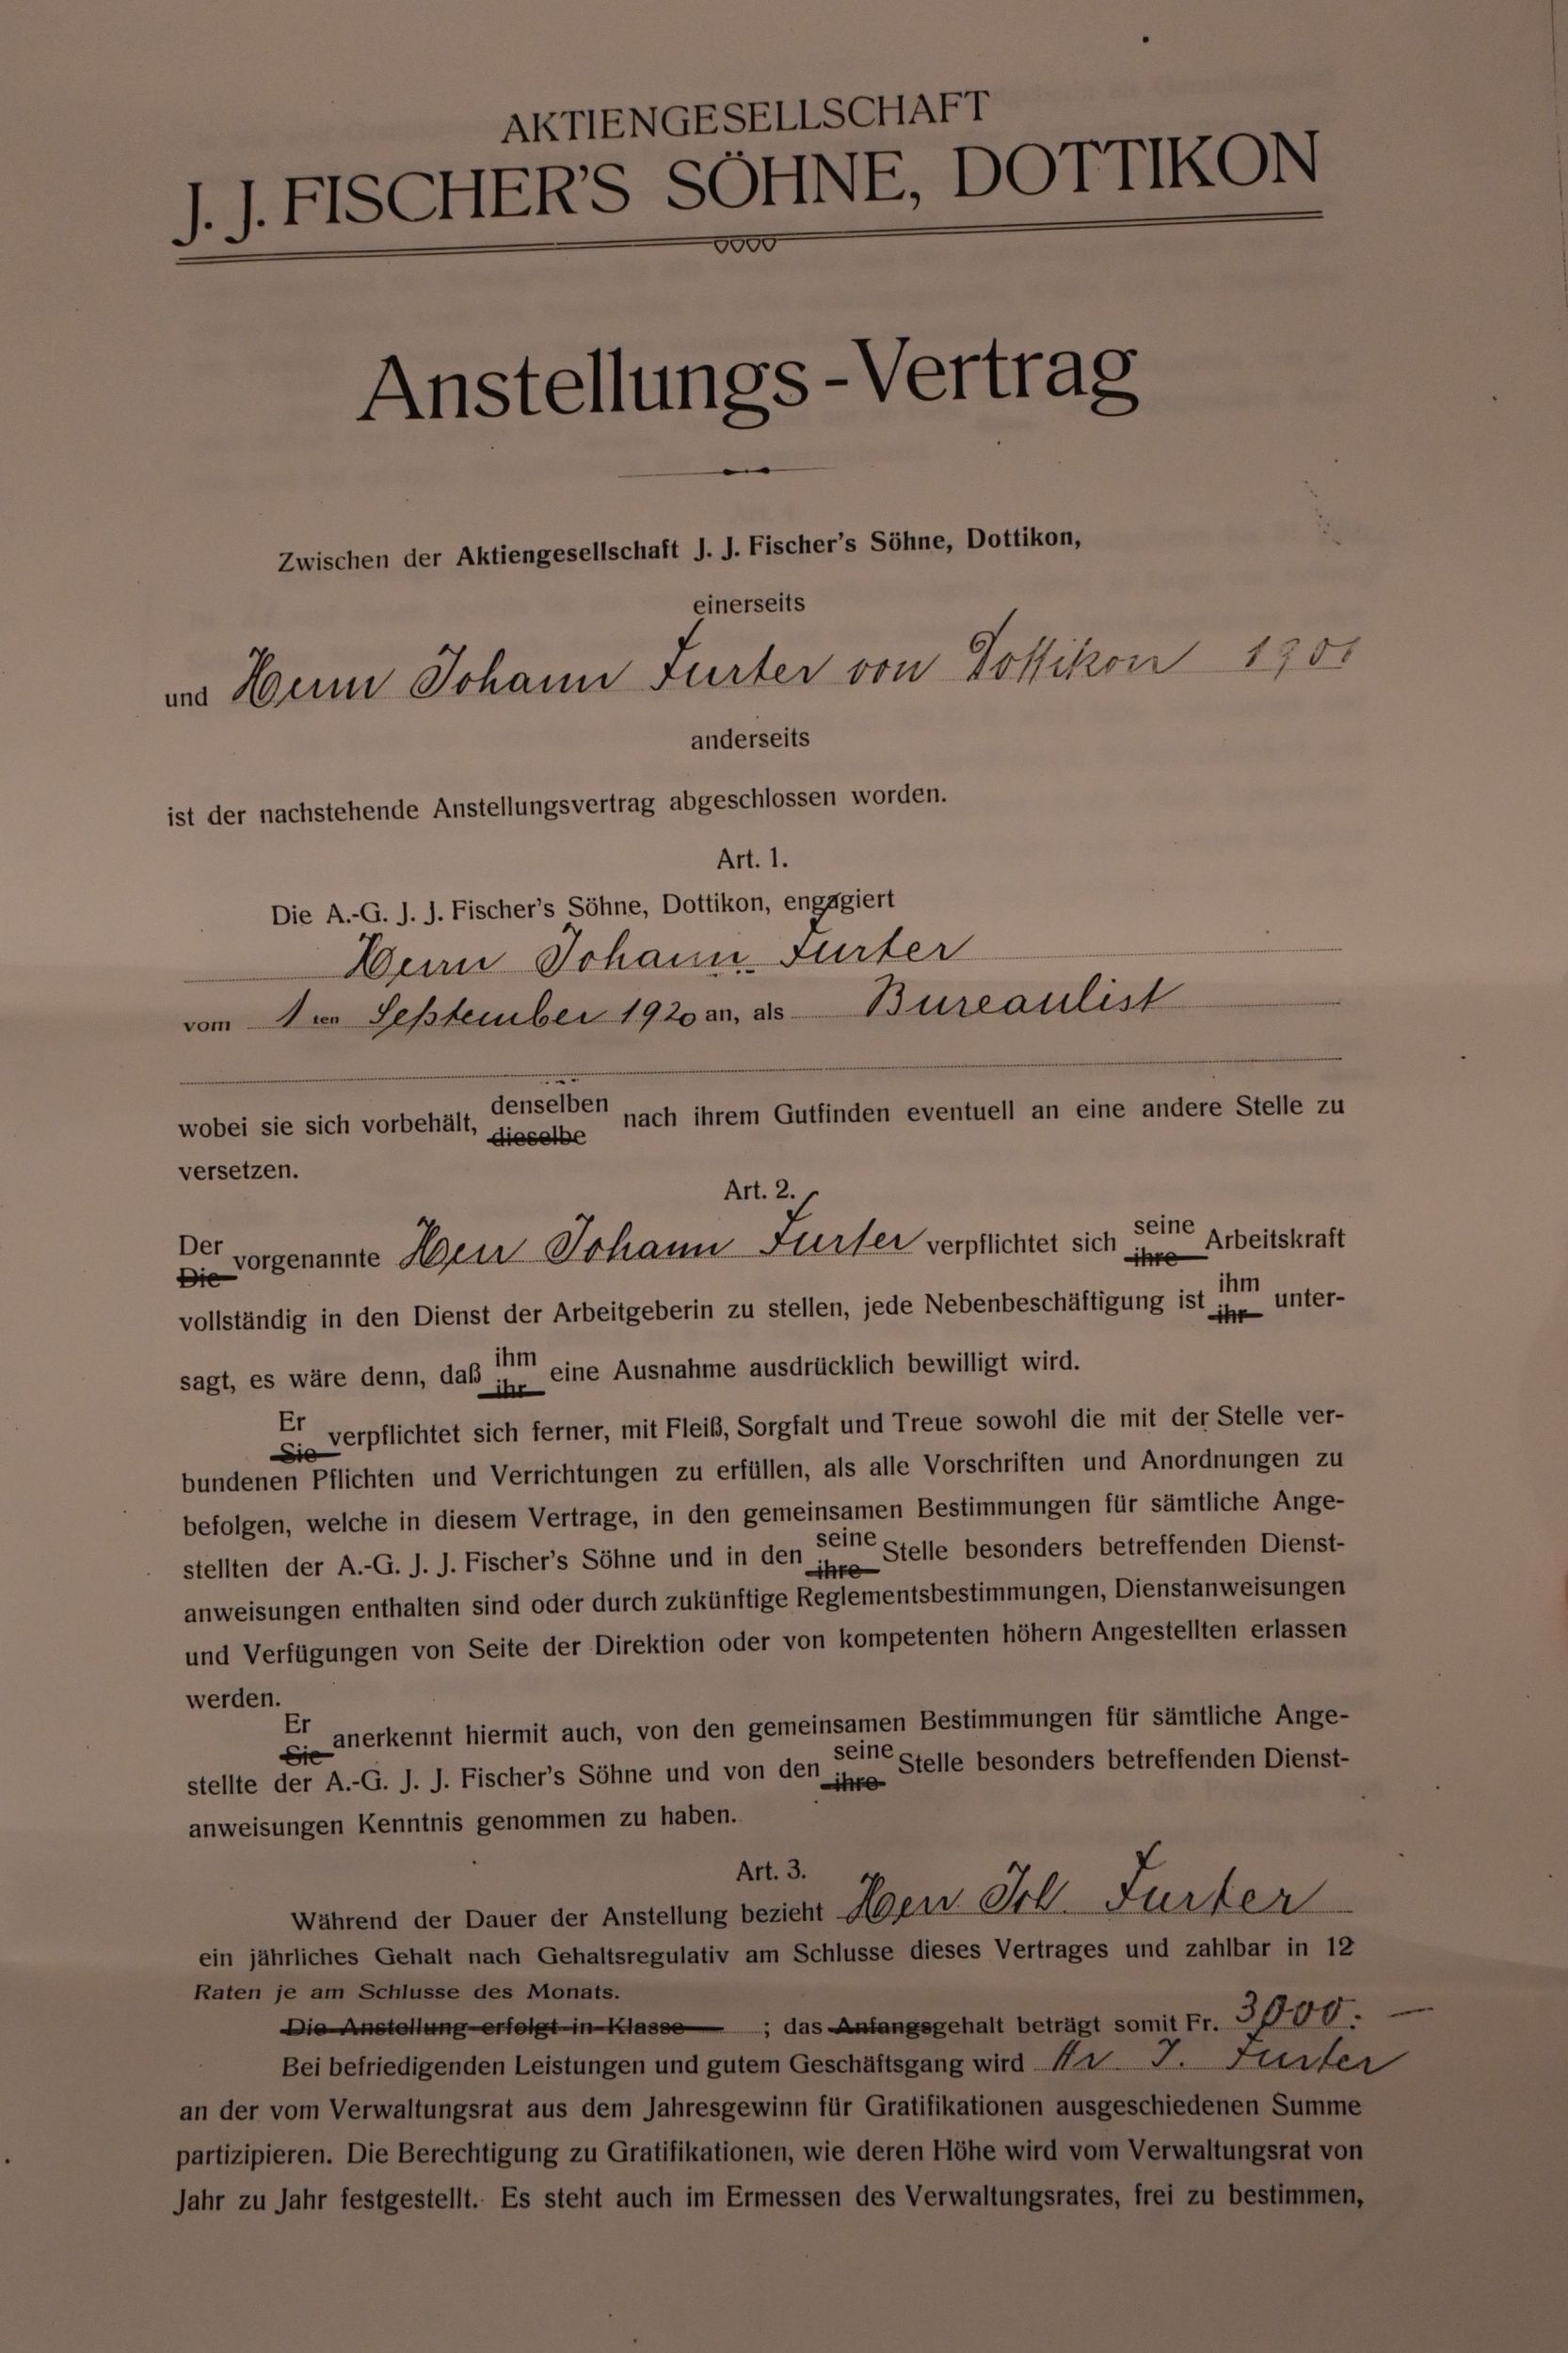 AKTIENGESELLSCHAFT
J. J. FISCHER'S SÖHNE, DOTTIKON
Anstellungs-Vertrag
Zwischen der Aktiengesellschaft J. J. Fischer's Söhne, Dottikon,
einerseits
und Herrn Johann Furter von Dottikon 1901
anderseits
ist der nachstehende Anstellungsvertrag abgeschlossen worden.
Art. 1.
Die A.-G. J. J. Fischer's Söhne, Dottikon, engagiert
Herrn Johann Furter
vom 1 ten September 1920 an, als Bureaulist
wobei sie sich vorbehält, denselben dieselbe nach ihrem Gutfinden eventuell an eine andere Stelle zu
versetzen.
Art. 2.
Der Die vorgenannte Herr Johann Furter verpflichtet sich seine ihre Arbeitskraft
vollständig in den Dienst der Arbeitgeberin zu stellen, jede Nebenbeschäftigung ist ihm ihr unter-
sagt, es wäre denn, daß ihm ihr eine Ausnahme ausdrücklich bewilligt wird.
Er Sie verpflichtet sich ferner, mit Fleiß, Sorgfalt und Treue sowohl die mit der Stelle ver-
bundenen Pflichten und Verrichtungen zu erfüllen, als alle Vorschriften und Anordnungen zu
befolgen, welche in diesem Vertrage, in den gemeinsamen Bestimmungen für sämtliche Ange-
stellten der A.-G. J. J. Fischer's Söhne und in den seine ihre Stelle besonders betreffenden Dienst-
anweisungen enthalten sind oder durch zukünftige Reglementsbestimmungen, Dienstanweisungen
und Verfügungen von Seite der Direktion oder von kompetenten höhern Angestellten erlassen
werden.
Er Sie anerkennt hiermit auch, von den gemeinsamen Bestimmungen für sämtliche Ange-
stellte der A.-G. J. J. Fischer's Söhne und von den seine ihre Stelle besonders betreffenden Dienst-
anweisungen Kenntnis genommen zu haben.
Art. 3.
Während der Dauer der Anstellung bezieht Herr Joh. Furter
ein jährliches Gehalt nach Gehaltsregulativ am Schlusse dieses Vertrages und zahlbar in 12
Raten je am Schlusse des Monats.
Die Anstellung erfolgt in Klasse ; das Anfangsgehalt beträgt somit Fr. 3000.—
Bei befriedigenden Leistungen und gutem Geschäftsgang wird Hr J. Furter
an der vom Verwaltungsrat aus dem Jahresgewinn für Gratifikationen ausgeschiedenen Summe
partizipieren. Die Berechtigung zu Gratifikationen, wie deren Höhe wird vom Verwaltungsrat von
Jahr zu Jahr festgestellt. Es steht auch im Ermessen des Verwaltungsrates, frei zu bestimmen,